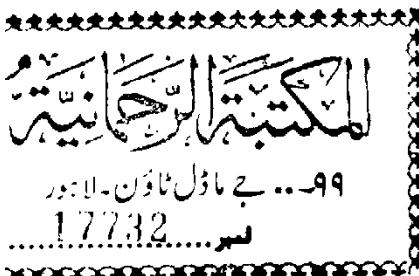 المكتبة الرحمانية
۹۹... جے ماڈل ٹاؤن۔ لاہور
نمبر.....17732.....